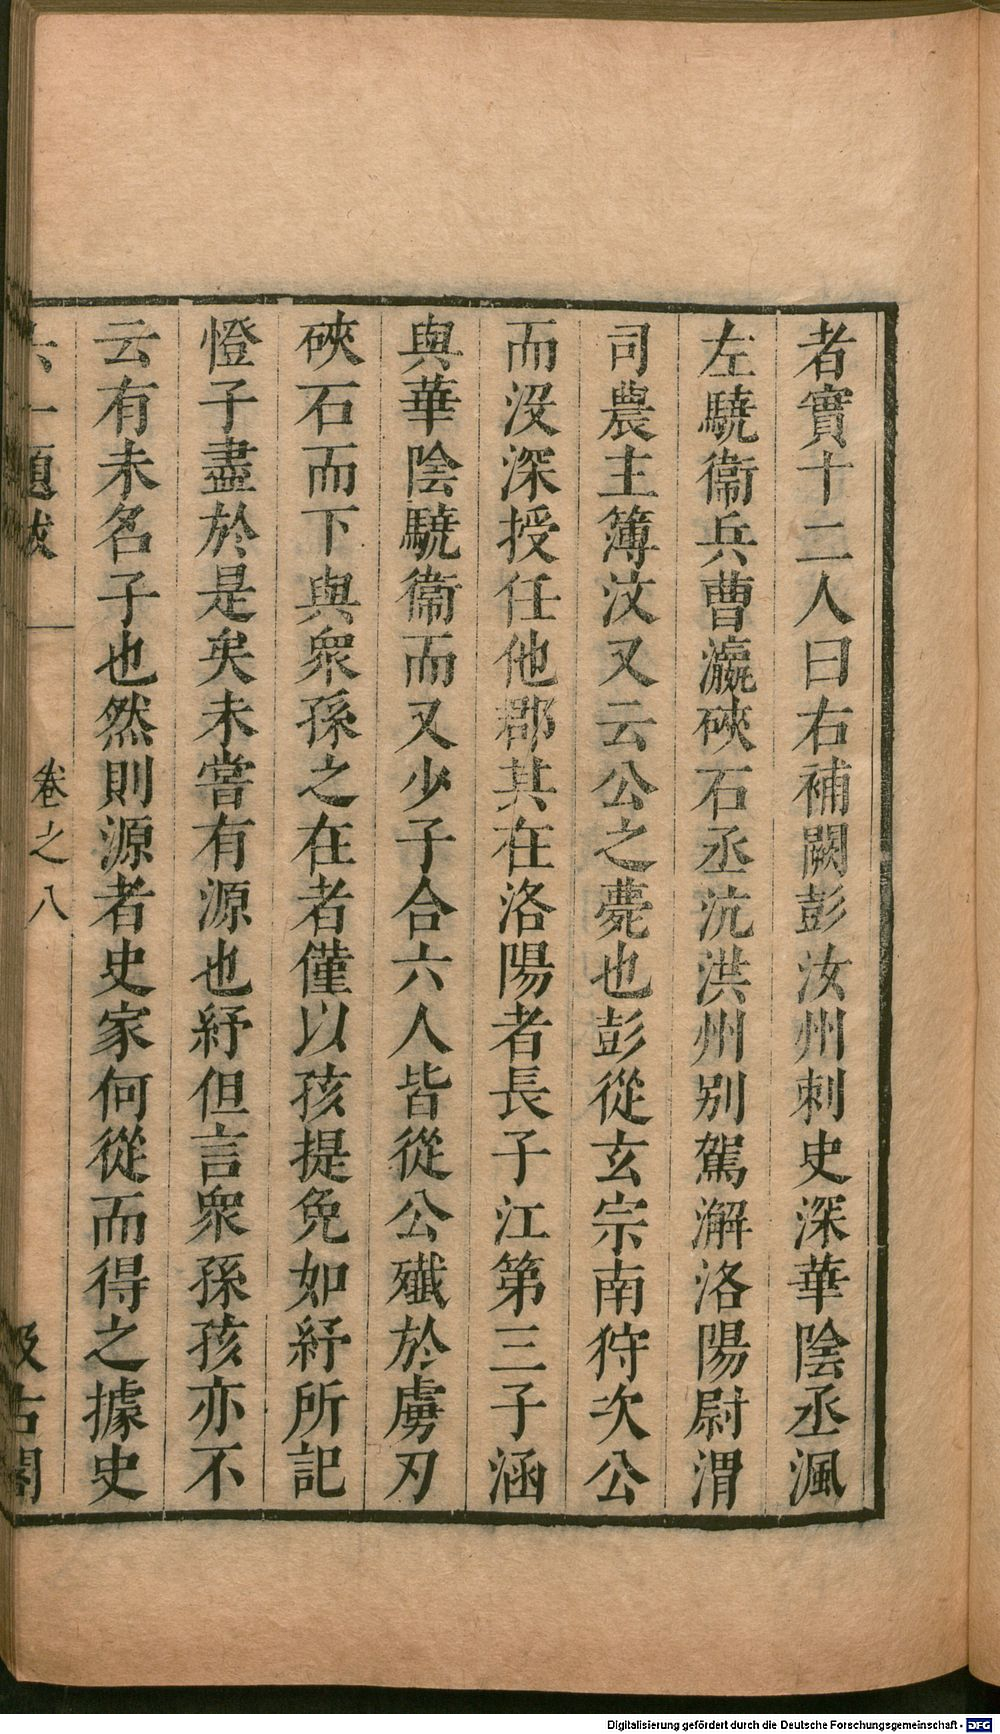 者實十二人曰右補闕彭汝州刺史深華陰丞渢
左驍衞兵曹瀛硤石丞沆洪州别駕澥洛陽尉渭
司農主簿汶又云公之薨也彭從玄宗南狩次公
而沒深授任他郡其在洛陽者長子江第三子涵
與華陰驍衞而又少子合六人皆從公殲於虜刃
硤石而下與衆孫之在者僅以孩提免如紓所記
憕子盡於是矣未嘗有源也紓但言衆孫孩亦不
云有未名子也然則源者史家何從而得之據史
六一題跋
卷之八
汲古閣
Digitalisierung gefördert durch die Deutsche Forschungsgemeinschaft - DFG